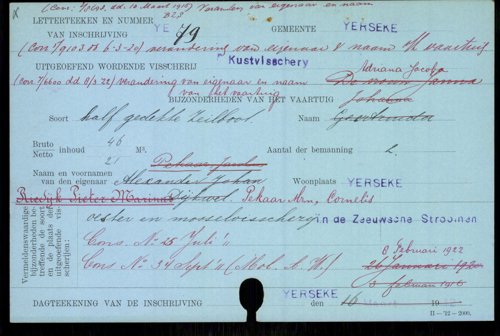 (Cons. 7/0143. dd. 10 Maart 1918) Verandern van eigenaar en naam
B23
LETTERTEEKEN EN NUMMER YE 79 GEMEENTE YERSEKE
VAN INSCHRIJVING
(Cons 7/9103 dd 6-3-20) verandering van eigenaar & naam v/h vaartuig
UITGEOEFD WORDENDE VISSCHERIJ Kustvisscherij Adriana Jacoba
(Cons 7/6600 dd 8/3 '22) verandering van eigenaar en naam Janna
van het vaartuig Johanna
BIJZONDERHEDEN VAN HET VAARTUIG
Soort half gedekte zeilboot Naam Geertruida
Bruto 46
inhoud M³. Aantal der bemanning 2
Netto 21
Pekaar Jacobus
Naam en voornamen Alexander Johan Woonplaats YERSEKE
van den eigenaar
Pieter Marinus Pekaar Arn, Cornelis
Vermeldenswaardige bijzonderheden betreffende de soort en de plaats der uitgeoefende visscherijen:
oester en mosselvisscherij in de Zeeuwsche Stroomen
Cons. No 25 Juli '11 8 Februari 1922
Cons No 34 Sept '11 (Mol. A. W.) 26 Januari 1920
8 februari 1918
DAGTEEKENING VAN DE INSCHRIJVING YERSEKE den 16 Maart
II - '12 - 2000.